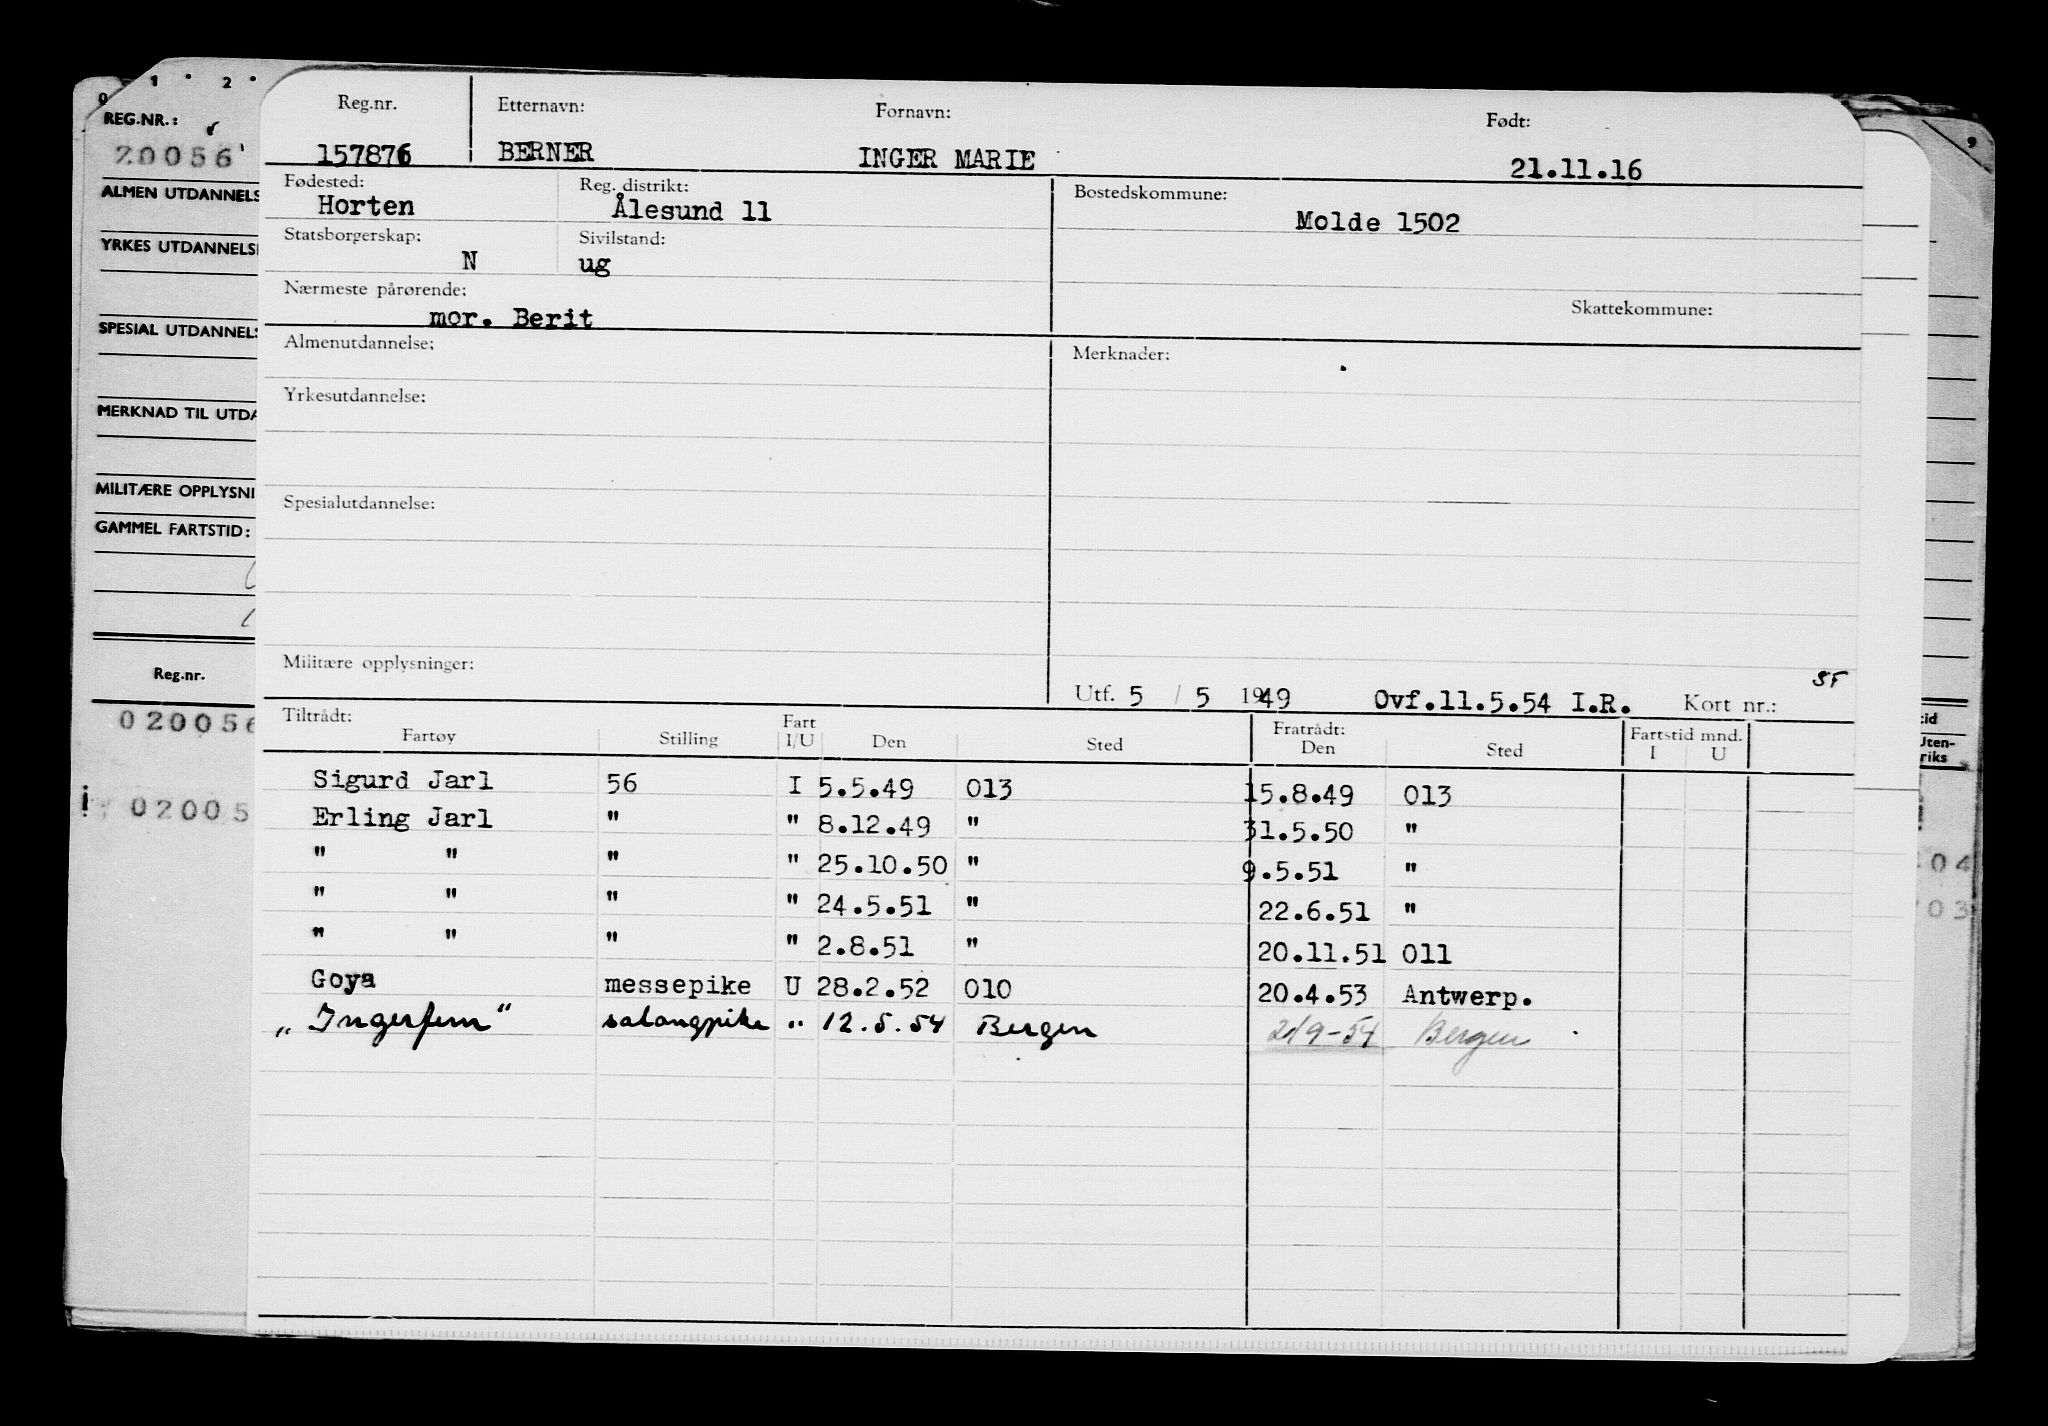 0 1 2
REG.NR.:
20056
ALMEN UTDANNELS
YRKES UTDANNELS
SPESIAL UTDANNELS
MERKNAD TIL UTDA
MILITÆRE OPPLYSNI
GAMMEL FARTSTID:
Reg.nr.
020056
02005
9
Uten-
riks
04
03
Reg.nr. Etternavn: Fornavn: Født:
157876 BERNER INGER MARIE 21.11.16
Fødested: Reg. distrikt: Bostedskommune:
Horten Ålesund 11 Molde 1502
Statsborgerskap: Sivilstand:
N ug
Nærmeste pårørende: Skattekommune:
mor. Berit
Almenutdannelse: Merknader:
Yrkesutdannelse:
Spesialutdannelse:
Militære opplysninger:
Utf. 5 / 5 1949 Ovf.11.5.54 I.R. Kort nr.:
Tiltrådt: Fart Fratrådt: Fartstid mnd.
Fartøy Stilling I/U Den Sted Den Sted I U
Sigurd Jarl 56 I 5.5.49 013 15.8.49 013
Erling Jarl " " 8.12.49 " 31.5.50 "
" " " " 25.10.50 " 9.5.51 "
" " " " 24.5.51 " 22.6.51 "
" " " " 2.8.51 " 20.11.51 011
Goya messepike U 28.2.52 010 20.4.53 Antwerp.
„Ingerfem" salongpike " 12.5.54 Bergen 21/9-54 Bergen